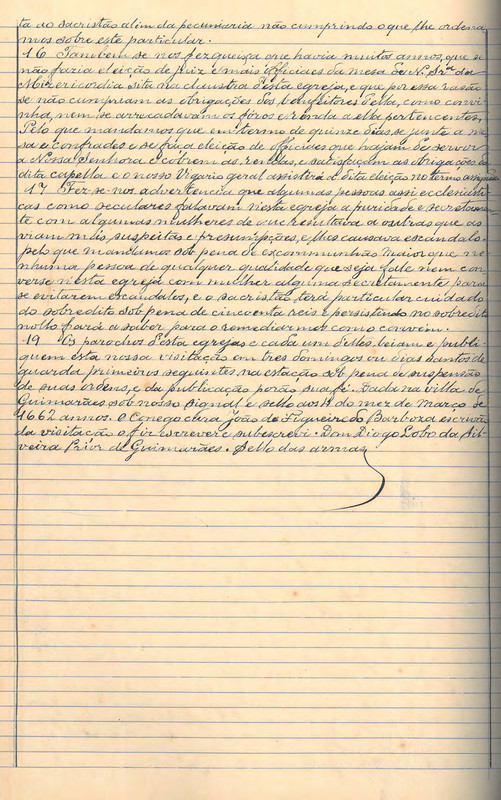 ta ao sacristão alem da pecuniaria não cumprindo o que lhe ordena
mos sobre este particular.
16 Tambem se nos fez queixa que havia muitos annos, que se
não fazia eleição de juiz e mais officiaes da mesa de N. Srª da
Misericordia sita na claustra d'esta egreja, e que por essa rasão
se não cumpriam as obrigações dos d'ella, como convi
nha, nem se arrecadavam os fóros e renda a ella pertencentes,
Pelo que mandamos que em termo de quinze dias se junte a me
sa e confrades e se faça eleição de officiaes que hajam de servir
a Nossa Senhora e cobrem as rendas, e satisfaçam as obrigações da
dita capella e o nosso Vigario geral assistirá á dita eleição no termo
17 Fez-se-nos advertencia que algumas pessoas assi ecclesiasti
cas como seculares falavam n'esta egreja a puridade e secretamen
te com algumas mulheres de que resultava a outras que as
viam más, suspeitas e presumpções, e lhes causava escandalo
pelo que mandamos sob pena de excommunhão maior que ne
nhuma pessoa de qualquer qualidade que seja fale nem con
verse n'esta egreja com mulher alguma secretamente para
se evitarem escandalos, e o sacristão terá particular cuidado
do sobredito sob pena de cincoenta reis e persistindo no sobredito
nol-o fará a saber para o remediarmos como convem.
19 Os parochos d'esta egreja e cada um d'elles leiam e publi
quem esta nossa visitação em tres domingos ou dias santos de
guarda primeiros seguintes na estação sob pena de suspensão
de suas ordens, e da publicação porão sua fé. Dada na villa de
Guimarães sob nosso signal e sello aos 14 do mez de Março de
1662 annos. O Conego cura João de Figueiredo Barboza escrivão
da visitação o fiz escrever e subescrevi. Dom Diogo Lobo da Sil
veira Prior de Guimarães. Sello das armas